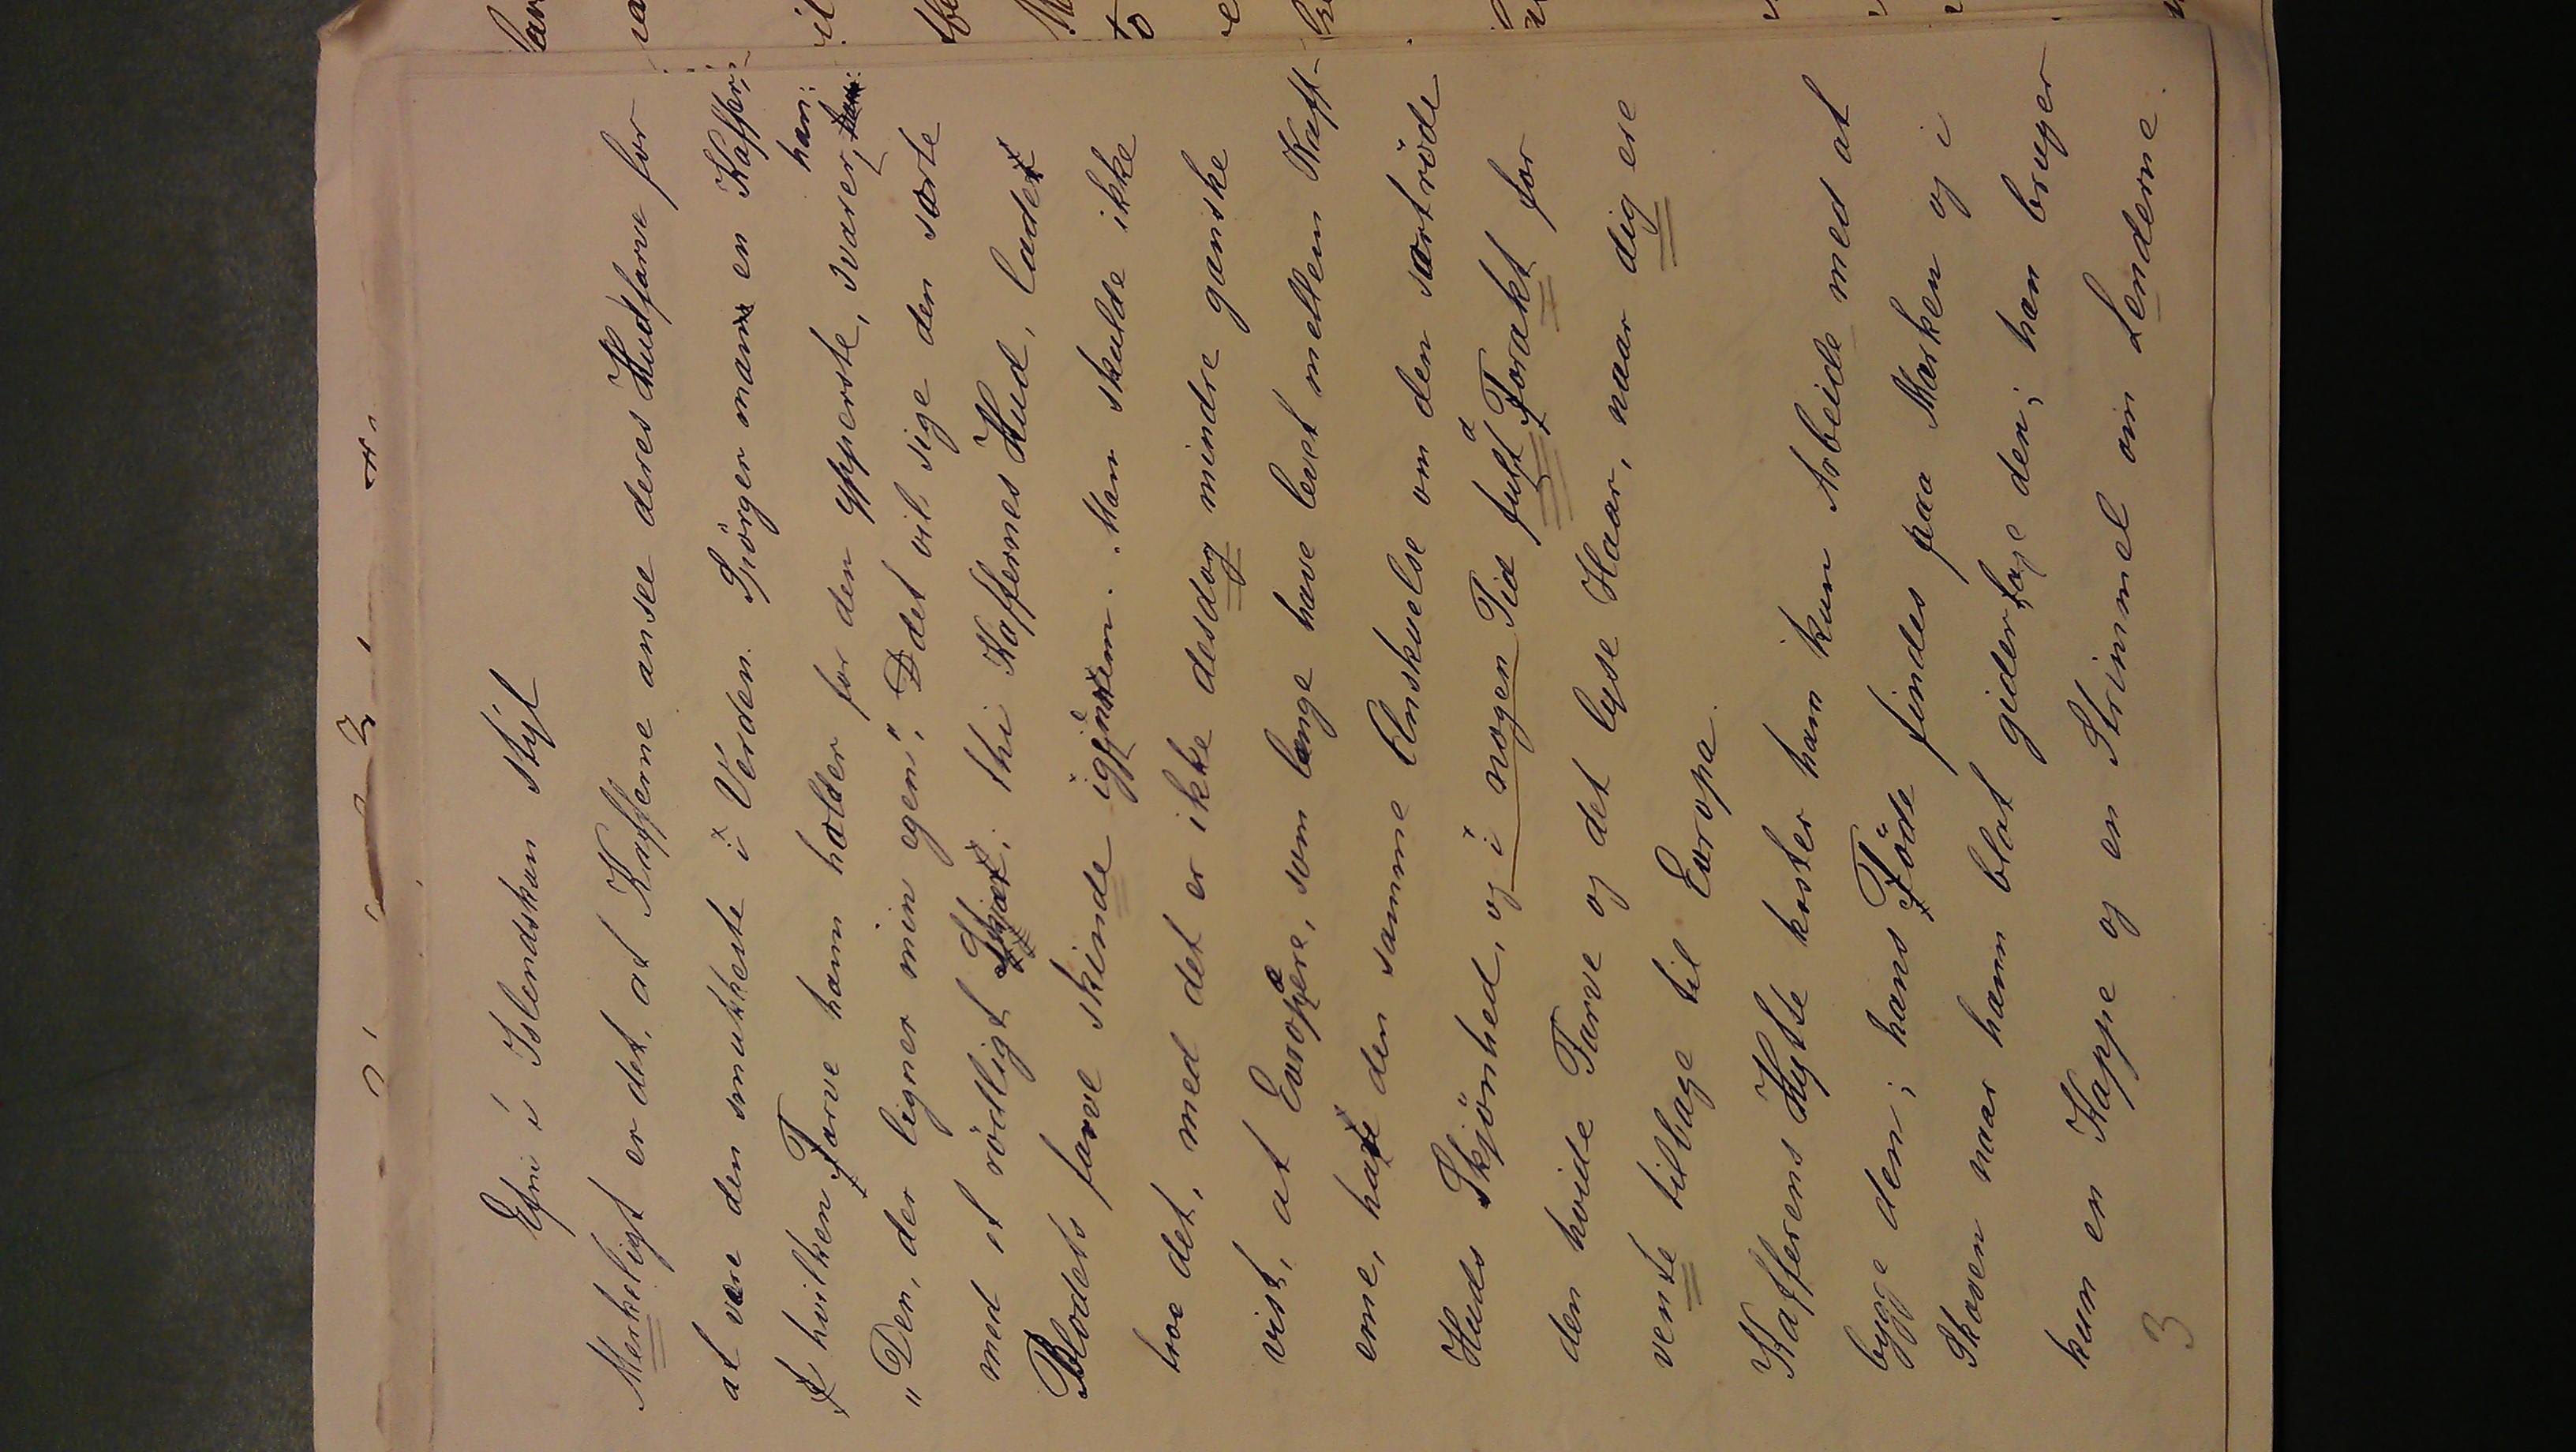 Efni í Islendskan stýl
Merkeligt er det, at Kafferne ansee deres Hudfarve for
at være den smukkeste i Verden. Spörger man en Kaffer,
hvilken Farve han holder for den ypperste, svarer han:
„Den, der ligner min egen“. Ddet vil sige den sorte
med et rödligt Skjær; thi Kaffernes Hud, lader
Blodets farve skinde igjennem. Man skulde ikke
troe det, med det er ikke desdog mindre ganske
vist, at Europæere, som længe have levet mellem Kaff-
erne, have den samme Anskuelse om den sortröde
Huds Skjönhed, og i nogen Tid fult Forakt for
den hvide Farve og det lyse Haar, naar dig ere
vente tilbage til Evropa.
Kafferens Hytte koster ham kun Arbeide med at
bygge dem; hans Föde findes paa Marken og i
Skoven naar ham blot gider tage den; han bruger
kun en Kappe og en Strimmel om Lenderne.
3